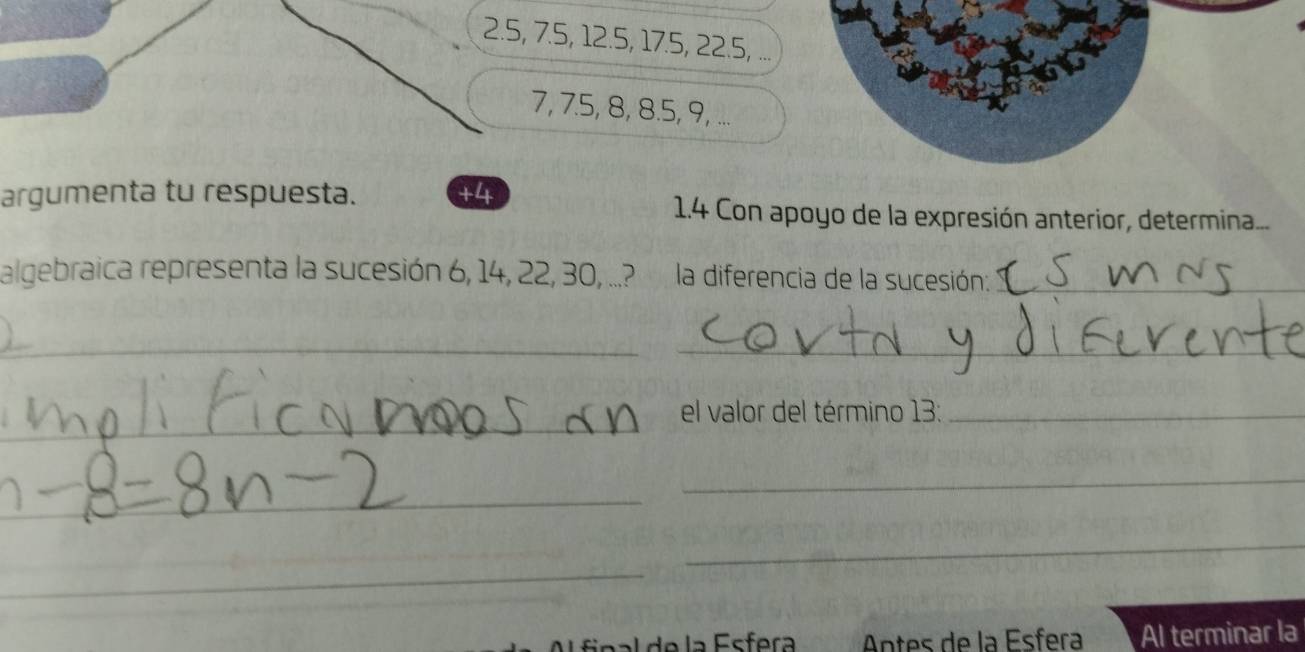 2.5, 7.5, 12.5, 17.5, 22.5, ...
7, 7.5, 8, 8.5, 9, ...
argumenta tu respuesta.
+4
algebraica representa la sucesión 6, 14, 22, 30, ...?
2
implificamoos an
n - 8 = 8n - 2
1.4 Con apoyo de la expresión anterior, determina...
la diferencia de la sucesión: es mas
corta y diferente
el valor del término 13:
Al final de la Esfera
Antes de la Esfera
Al terminar la